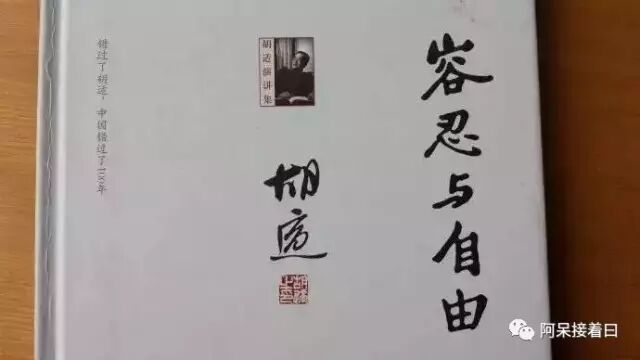 容忍与自由
胡适演讲集
胡适
错过了胡适，中国错过了100年
阿呆接着曰